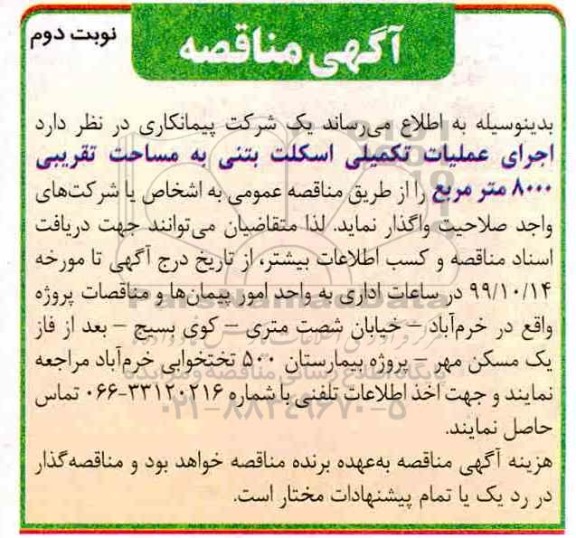 آگهی مناقصه
نوبت دوم
بدینوسیله به اطلاع می‌رساند یک شرکت پیمانکاری در نظر دارد
اجرای عملیات تکمیلی اسکلت بتنی به مساحت تقریبی
۸۰۰۰ متر مربع را از طریق مناقصه عمومی به اشخاص یا شرکت‌های
واجد صلاحیت واگذار نماید. لذا متقاضیان می‌توانند جهت دریافت
اسناد مناقصه و کسب اطلاعات بیشتر، از تاریخ درج آگهی تا مورخه
۹۹/۱۰/۱۴ در ساعات اداری به واحد امور پیمان‌ها و مناقصات پروژه
واقع در خرم‌آباد – خیابان شصت متری – کوی بسیج – بعد از فاز
یک مسکن مهر – پروژه بیمارستان ۵۰۰ تختخوابی خرم‌آباد مراجعه
نمایند و جهت اخذ اطلاعات تلفنی با شماره ۳۳۱۲۰۲۱۶-۰۶۶ تماس
حاصل نمایند.
هزینه آگهی مناقصه به‌عهده برنده مناقصه خواهد بود و مناقصه‌گذار
در رد یک یا تمام پیشنهادات مختار است.
ParsNamadData
۰۲۱-۸۸۳۴۹۶۷۰-۵